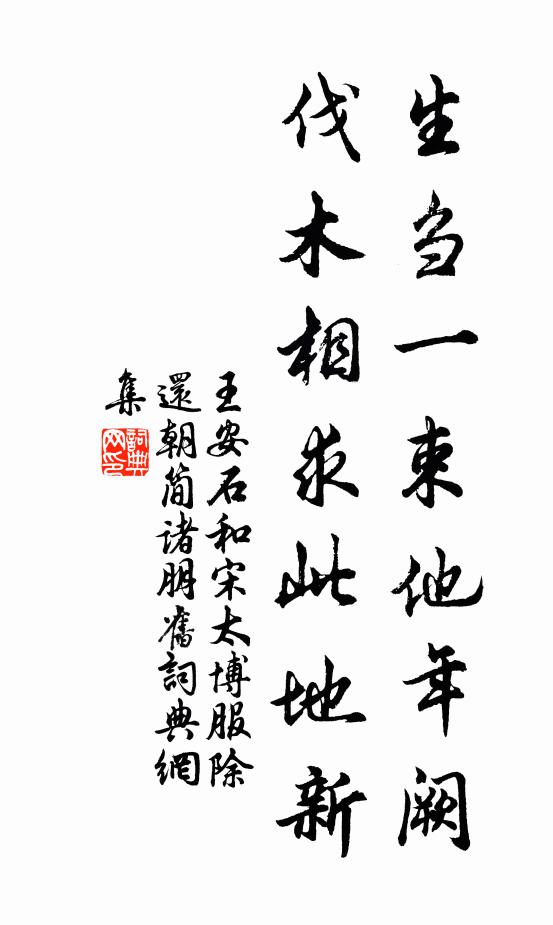 生刍一束他年阙
伐木相求此地新
王安石和宋太博服除
還朝简诸朋舊詞典網
集
詞典网印